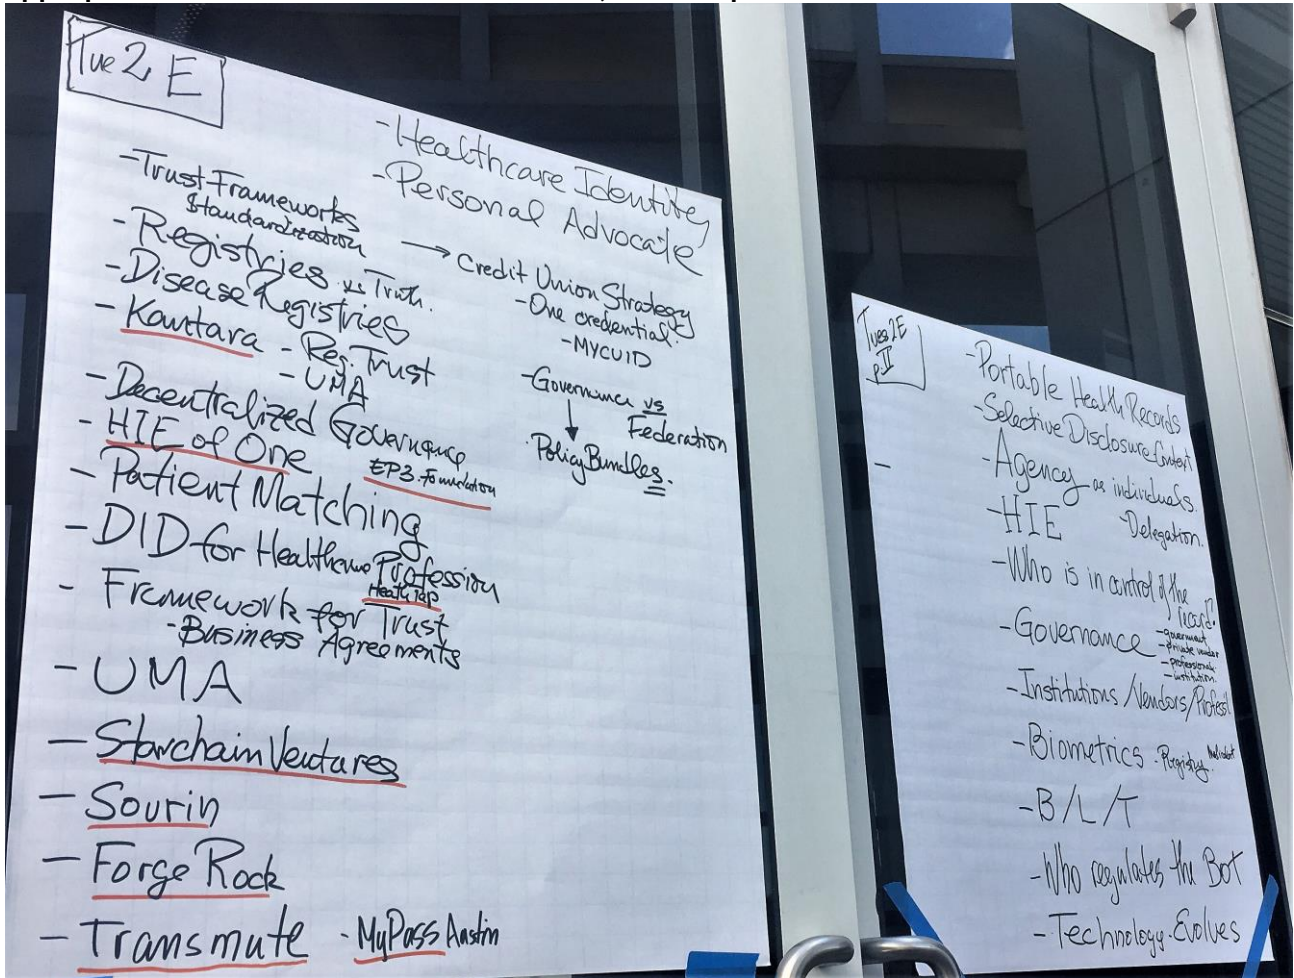 Tue 2 E
- Healthcare Identity
- Personal Advocate
- Trust Frameworks
Standardization
- Registries vs Truth.
- Disease Registries
- Kantara - Reg. Trust
- UMA
- Decentralized Governance
- HIE of One
EP3. Foundation
- Patient Matching
- DID for Healthcare Profession
Health Tap
- Framework for Trust
- Business Agreements
- UMA
- Starchain Ventures
- Sovrin
- Forge Rock
- Transmute - MyPass Austin
→ Credit Union Strategy
- One credential.
- MYCUID
- Governance vs
Federation
Policy Bundles.
Tues 2E
p. II
- Portable Health Records
- Selective Disclosure
- Agency as individuals.
- HIE - Delegation.
- Who is in control of the
record?
- Governance
- government
- private vendor
- professional
- institution.
- Institutions / Vendors / Profess'l
- Biometrics - Registry
- B/L/T
- Who regulates the Bot
- Technology - Evolves